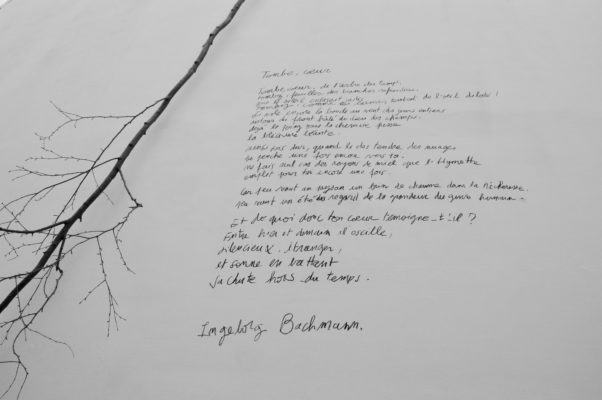 Tombe, cœur
Tombe cœur, de l'arbre du temps,
tombez, feuilles, des branches refroidies
que le soleil embrassait jadis
tombez, comme les larmes tombent de l'œil dilaté !
vole encore la boucle au vent des jours entiers
autour du front hâlé du dieu des champs.
déjà le poing sous la chemise presse
la blessure béante.
sois dur, quand le dos tendre des nuages
se penche une fois encore vers toi.
ne fais nul cas des rayons de miel que l'Hymette
emplit pour toi encore une fois.
Car peu vaut un brin de chaume dans la sécheresse.
peu vaut un été au regard de la grandeur du genre humain.
Et de quoi donc ton cœur témoigne-t-il ?
Entre hier et demain il oscille,
silencieux, étranger,
et sonne en battant
sa chute hors du temps.
Ingeborg Bachmann.